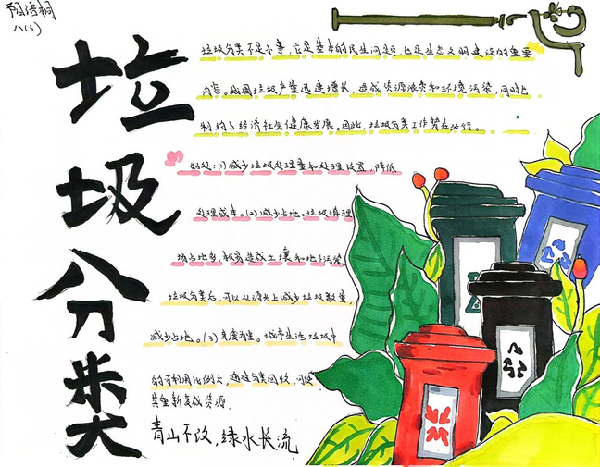 八(1)
垃圾分类
垃圾分类不是小事，它是基本的民生问题，也是生态文明建设的重要
内容。我国垃圾产量迅速增长，造成资源浪费和环境污染，同时也
制约了经济社会健康发展，因此，垃圾分类工作势在必行。
好处：(1)减少垃圾处理量和处理设备，降低
处理成本。(2)减少占地。垃圾填埋
场占地多，且容易造成土壤和地下污染
垃圾分类后，可以从源头上减少垃圾数量，
减少占地。(3)变废为宝。城市生活垃圾中
的可利用比例大，通过分类回收，可使
其重新变成资源.
青山不改，绿水长流